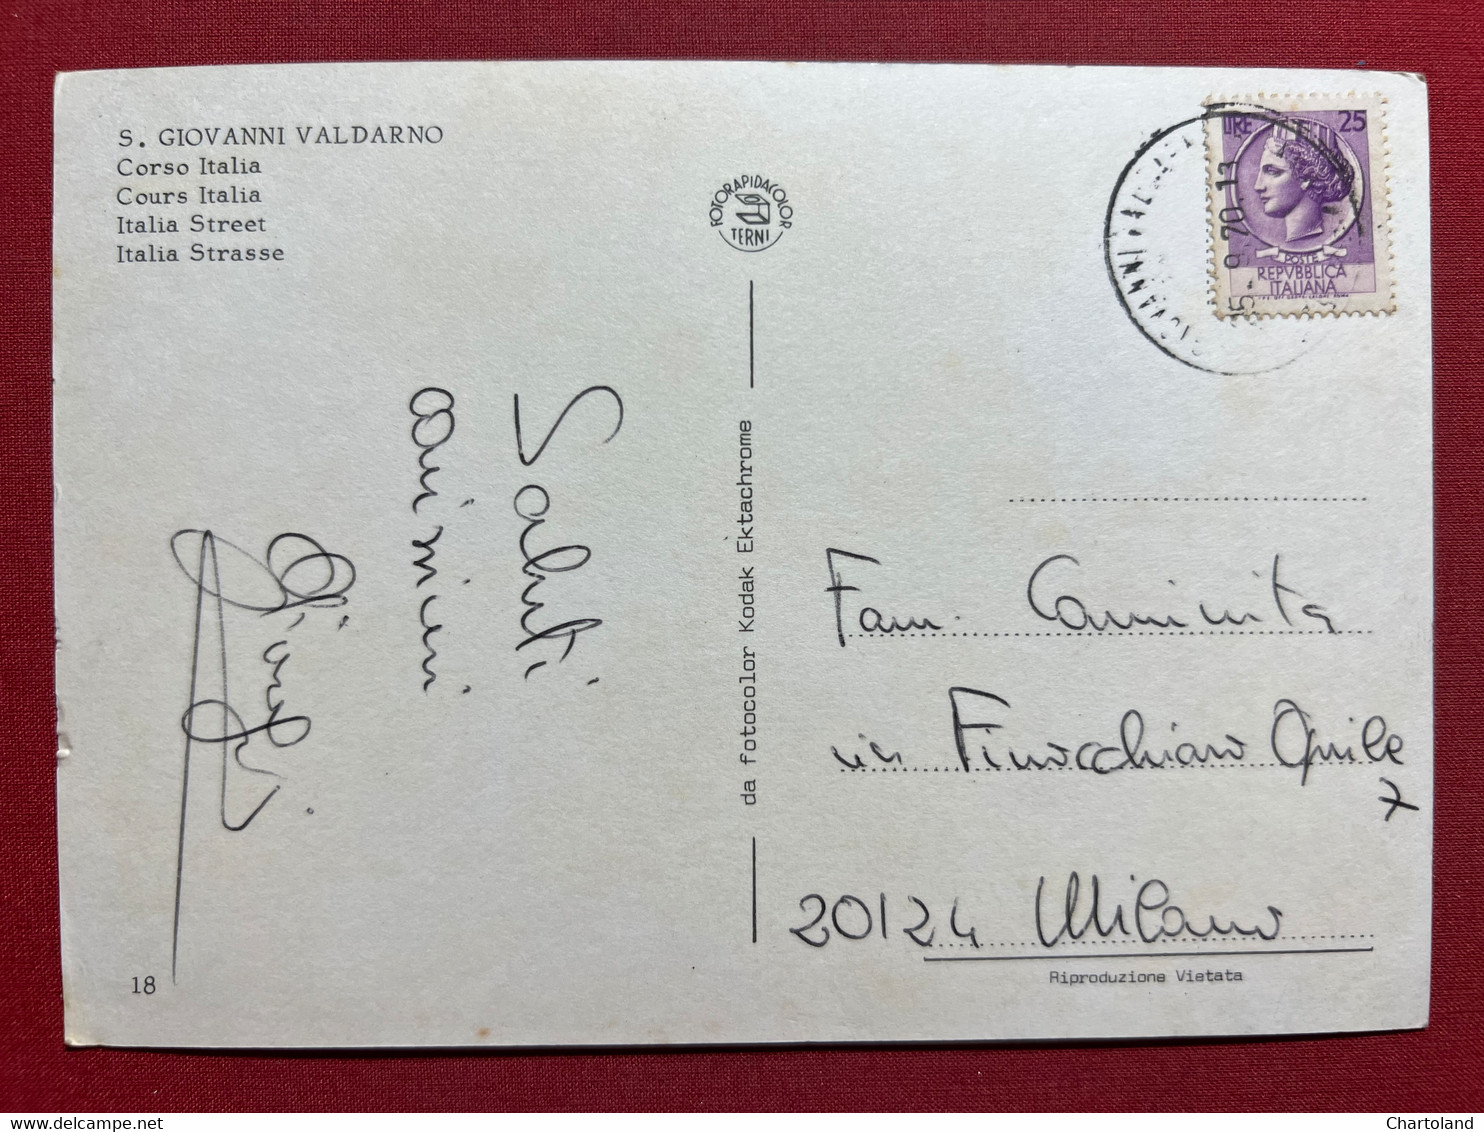 S. GIOVANNI VALDARNO
Corso Italia
Cours Italia
Italia Street
Italia Strasse
FOTORAPIDACOLOR
TERNI
LIRE 25
POSTE
REPVBBLICA
ITALIANA
GIOVANNI VALDARNO
25-9 70.13
Saluti
carissimi
da fotocolor Kodak Ektachrome
Fam.
via Finocchiaro Aprile
7
20124 Milano
Riproduzione Vietata
18
Chartoland
delcampe.net